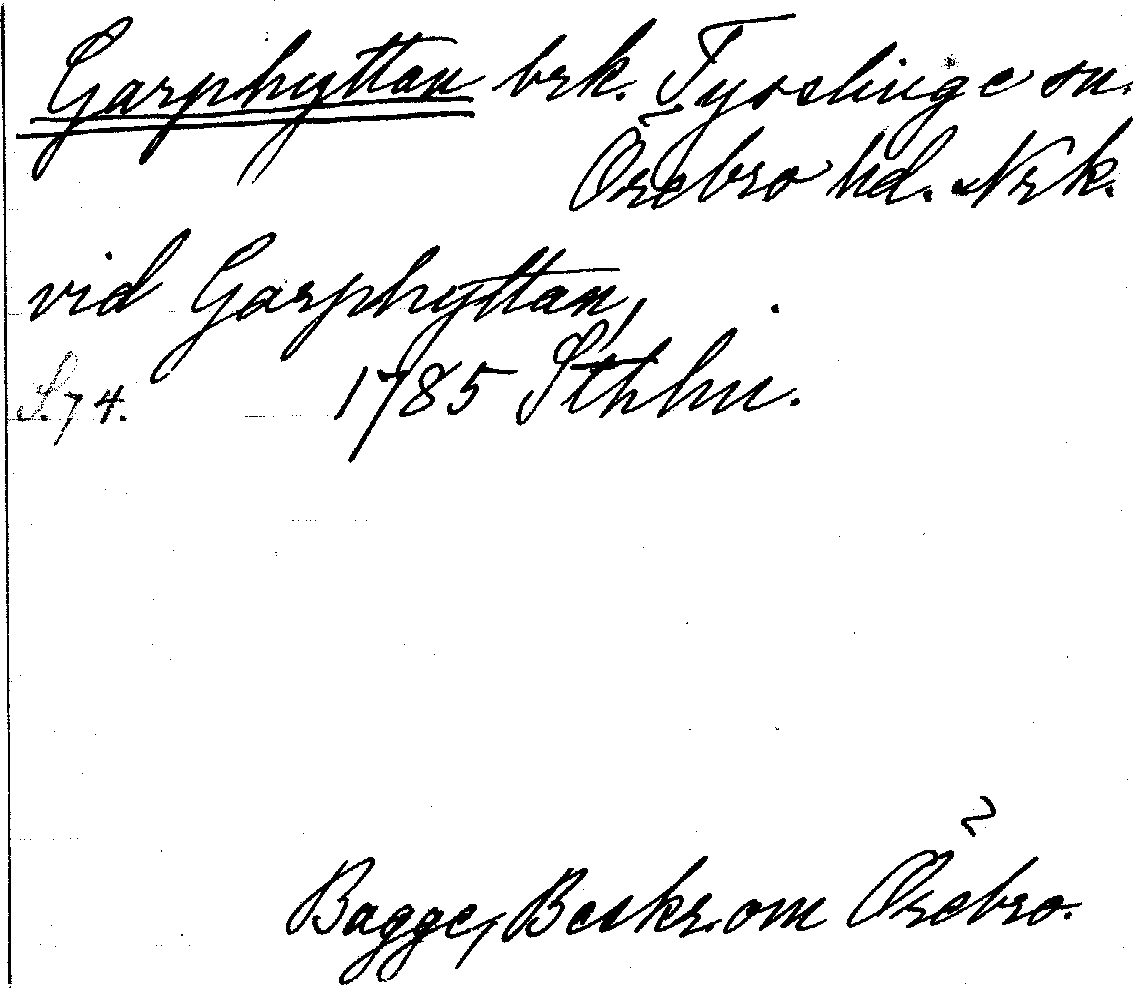 Garphyttan brk. Tysslinge sn.
Örebro hd. Nrk.
vid Garphyttan,
S. 74. 1785 Sthlm.
Bagge, Beskr. om Örebro.